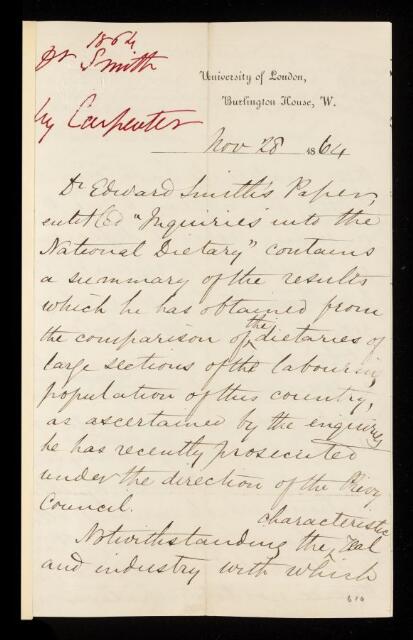 1864
Dr Smith
by Carpenter
University of London,
Burlington House, W.
Nov 28 1864
Dr Edward Smith's Paper,
entitled "Inquiries into the
National Dietary" contains
a summary of the results
which he has obtained from
the comparison of the dietaries of
large sections of the labouring
population of this country,
as ascertained by the enquiries
he has recently prosecuted
under the direction of the Privy
Council.
Notwithstanding the characteristic zeal
and industry with which